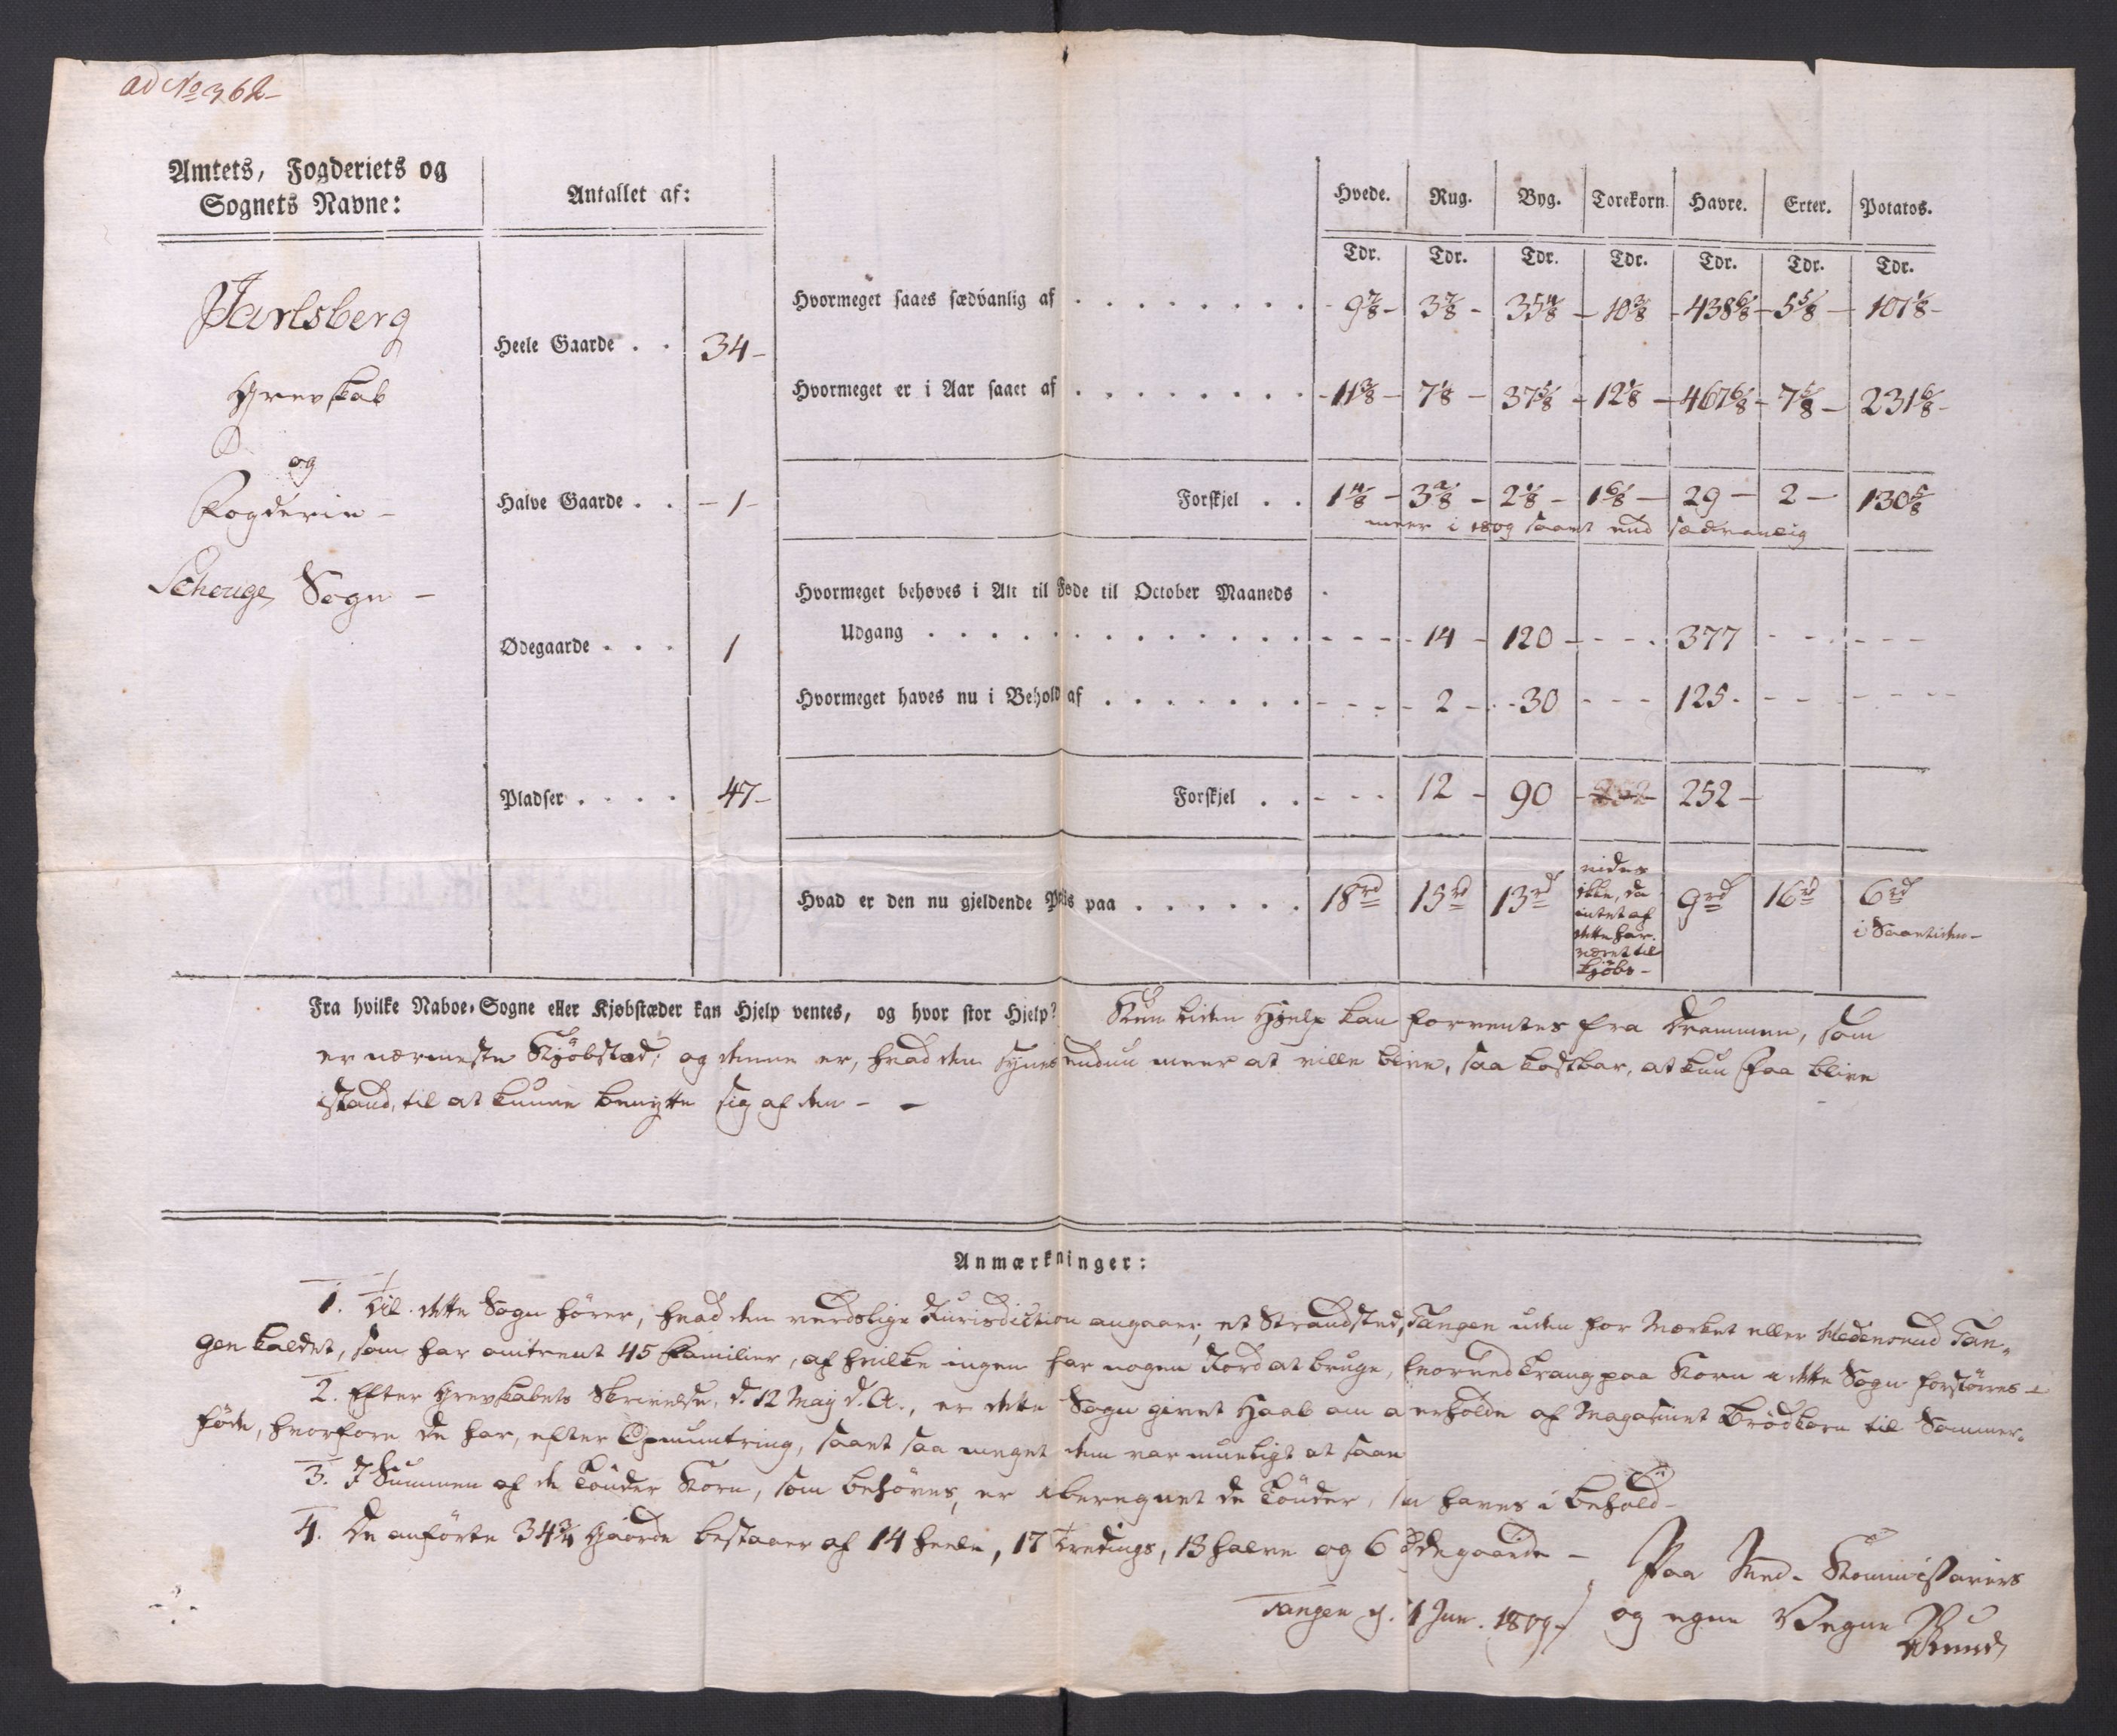 ad No 362-
Amtets, Fogderiets og
Sognets Navne:
Antallet af:
Hvede. Rug. Byg. Torekorn. Havre. Erter. Potatos.
Tdr. Tdr. Tdr. Tdr. Tdr. Tdr. Tdr.
Jarlsberg
Grevskab
og
Fogderie -
Schouge Sogn -
Heele Gaarde . . 34-
Halve Gaarde . . - 1 -
Ødegaarde . . . 1
Pladser . . . . 47-
Hvormeget saaes sædvanlig af . . . . . . . . 9 7/8 - 3 7/8 - 35 4/8 - 10 3/8 - 438 6/8 - 5 5/8 - 101 1/8 -
Hvormeget er i Aar saaet af . . . . . . . . 11 3/8 - 7 1/8 - 37 5/8 - 12 1/8 - 467 6/8 - 7 5/8 - 231 6/8 -
Forskjel . . 1 4/8 - 3 2/8 - 2 1/8 - 1 6/8 - 29 - 2 - 130 5/8
meer i 1809 saaet end sædvanlig
Hvormeget behøves i Alt til Føde til October Maaneds
Udgang . . . . . . . . . . . . . - - - 14 - 120 - - - 377 - - - - -
Hvormeget haves nu i Behold af . . . . . . . - - - 2 - 30 - - - 125 - - - - -
Forskjel . . - - - 12 - 90 - 252 - 252 -
Hvad er den nu gjeldende Priis paa . . . . . . 18 rd 15 rd 13 rd 9 rd 16 rd 6 rd
vides
ikke, da
intet af
dette har
været til
kjöbs -
i Saaetiden -
Fra hvilke Naboe-Sogne eller Kjøbstæder kan Hjelp ventes, og hvor stor Hjelp? Kun liden Hjelp kan forventes fra Drammen, som
er nærmeste Kjöbstad; og denne er, hvad den synes endnu meer at ville blive, saa kostbar, at kun faa blive
istand, til at kunne benytte sig af den - -
Anmærkninger:
1. Til dette Sogn hörer, hvad den verdslige Jurisdiction angaaer, et Strandsted, Tangen uden for Mærket eller Nedenrud Tan-
gen kaldet, som har omtrent 45 Familier, af hvilke ingen har nogen Jord at bruge, hvorved Trang paa Korn i dette Sogn forstörres -
2. Efter Grevskabets Skrivelse, d. 12 May d. A., er dette Sogn givet Haab om at erholde af Magasinet Brödkorn til Sommer-
föde, hvorfore de har, efter Opmuntring, saaet saa meget dem var mueligt at saae
3. I Summen af de Tönder Korn, som behöves, er iberegnet de Tönder, som haves i Behold -
4. De anförte 34 3/4 Gaarde bestaaer af 14 heele, 17 Tredings, 13 halve og 6 Ødegaarde -
Paa Med-Kommissairers
Tangen d. 1 Jun. 1809 - og egne Vegne